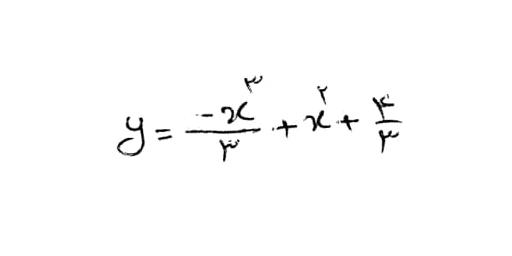 y = \frac{-x^۳}{۳} + x^۲ + \frac{۴}{۳}